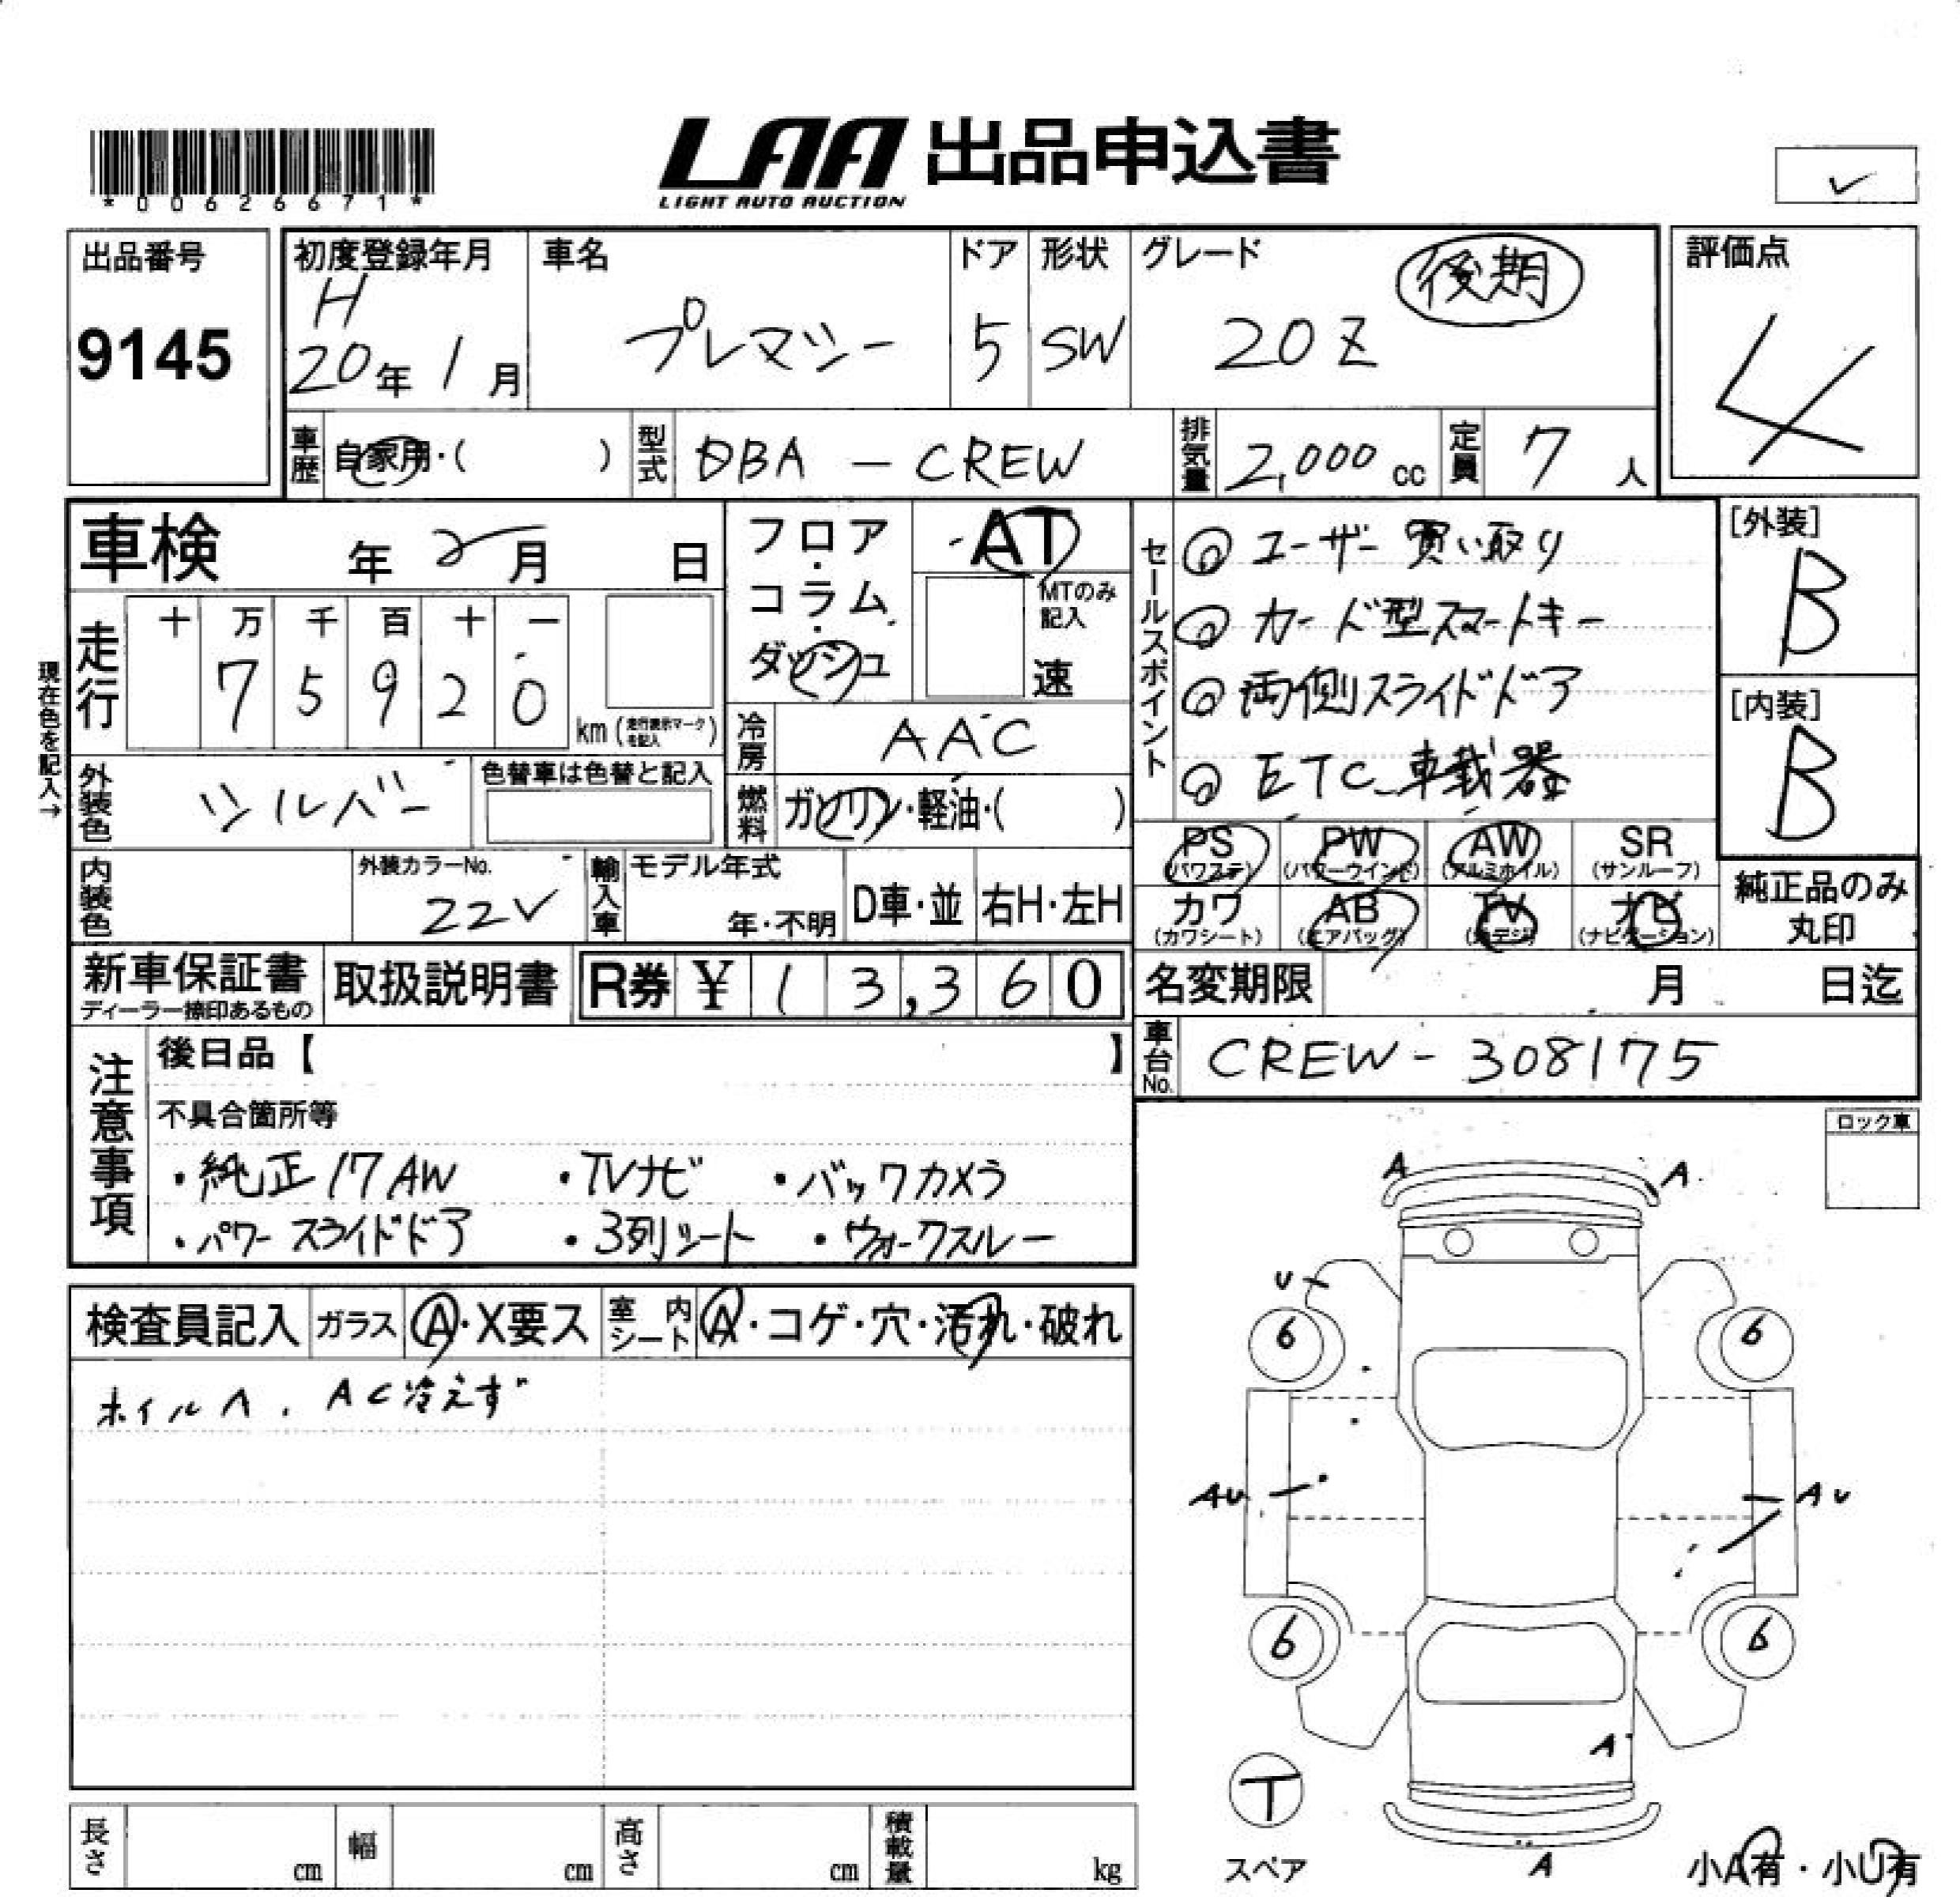 *00626671*
LAA 出品申込書
LIGHT AUTO AUCTION
✓
出品番号
9145
初度登録年月
H
20年 1月
車名
プレマシー
ドア
5
形状
SW
グレード
後期
20Z
評価点
4
車歴 自家用・( )
型式 DBA - CREW
排気量 2,000 cc
定員 7人
車検 年 2月 日
フロア・コラム・ダッシュ
AT
MTのみ記入
速
セールスポイント
◎ ユーザー買い取り
◎ カード型スマートキー
◎ 両側スライドドア
◎ ETC車載器
[外装]
B
[内装]
B
走行
十 万 千 百 十 一
7 5 9 2 0
km (走行表示マークを記入)
現在色を記入→
冷房 AAC
外装色 シルバー
色替車は色替と記入
燃料 ガソリン・軽油・( )
PS (パワステ)
PW (パワーウインド)
AW (アルミホイル)
SR (サンルーフ)
カワ (カワシート)
AB (エアバッグ)
TV (地デジ)
ナビ (ナビゲーション)
純正品のみ丸印
内装色
外装カラーNo.
22V
輸入車
モデル年式
年・不明
D車・並
右H・左H
新車保証書
ディーラー捺印あるもの
取扱説明書
R券 ¥ 13,360
名変期限 月 日迄
車台No. CREW-308175
注意事項
後日品【 】
不具合箇所等
・純正17AW ・TVナビ ・バックカメラ
・パワースライドドア ・3列シート ・ウォークスルー
ロック車
検査員記入
ガラス A・X要ス
室内シート A・コゲ・穴・汚れ・破れ
ホイルA、AC冷えず
A A
U
6 6
AU AU
6 6
A
T
スペア
A
小A有・小U有
長さ cm
幅 cm
高さ cm
積載量 kg